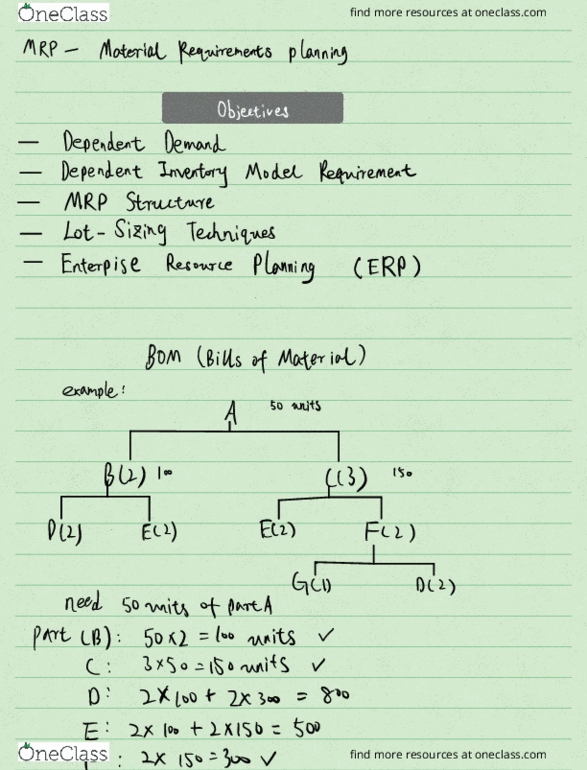 OneClass find more resources at oneclass.com
MRP - Material Requirements planning
Objectives
— Dependent Demand
— Dependent Inventory Model Requirement
— MRP Structure
— Lot-Sizing Techniques
— Enterpise Resource Planning (ERP)
BOM (Bills of Material)
example:
A 50 units
B(2) 100 C(3) 150
D(2) E(2) E(2) F(2)
G(1) D(2)
need 50 units of part A
Part (B): 50 x 2 = 100 units ✓
C: 3 x 50 = 150 units ✓
D: 2 x 100 + 2 x 300 = 800
E: 2 x 100 + 2 x 150 = 500
: 2 x 150 = 300 ✓
OneClass find more resources at oneclass.com